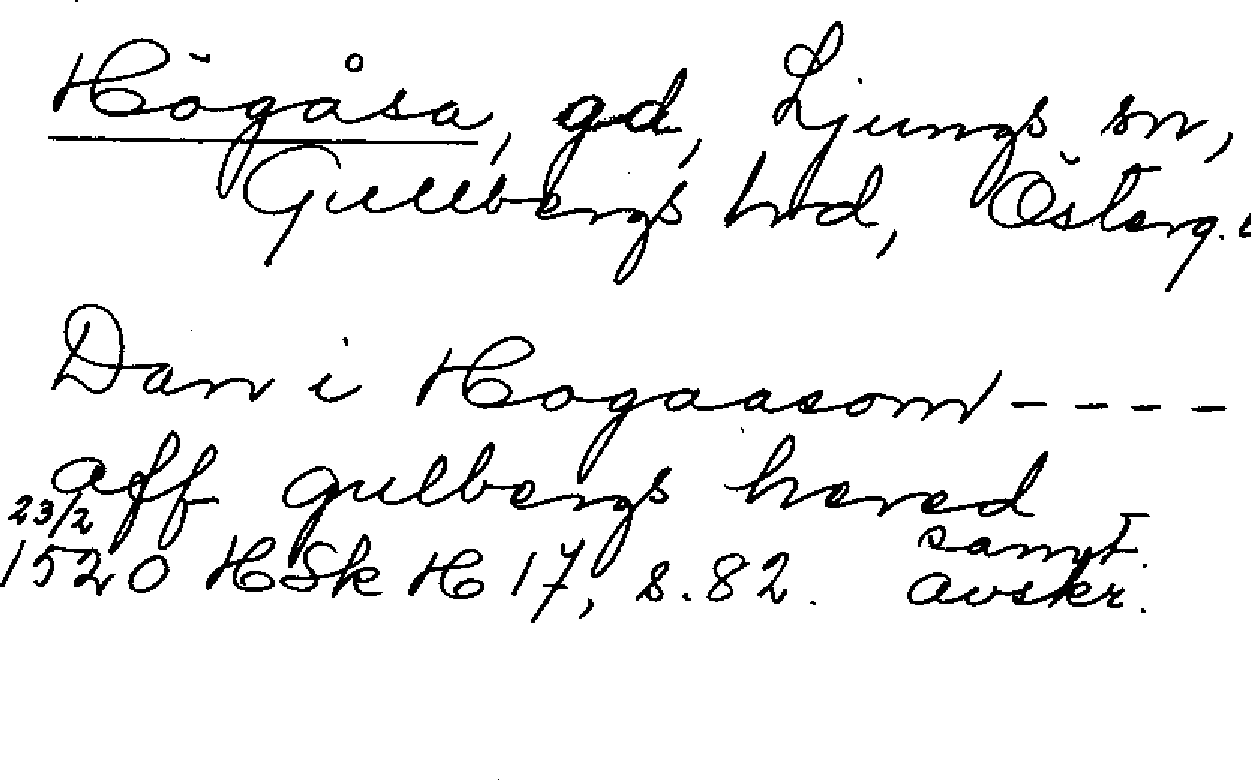 Högåsa, gd, Ljungs sn,
Gullbergs hd, Österg.
Dan i Hogaasom - - - -
aff gulbergs hered
23/2
1520 HSk H 17, s. 82. samt. avskr.